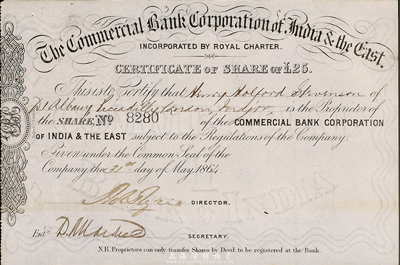 The Commercial Bank Corporation of India & the East.
INCORPORATED BY ROYAL CHARTER.
CERTIFICATE OF SHARE OF £25.
This is to Certify that Henry Holford Stevenson of
Albany Piccadilly London is the Proprietor of
the SHARE, No 8280 of the COMMERCIAL BANK CORPORATION
OF INDIA & THE EAST subject to the Regulations of the Company.
Given under the Common Seal of the
Company the 31st day of May 1864
DIRECTOR.
Entd
SECRETARY.
N.B. Proprietors can only transfer Shares by Deed to be registered at the Bank.